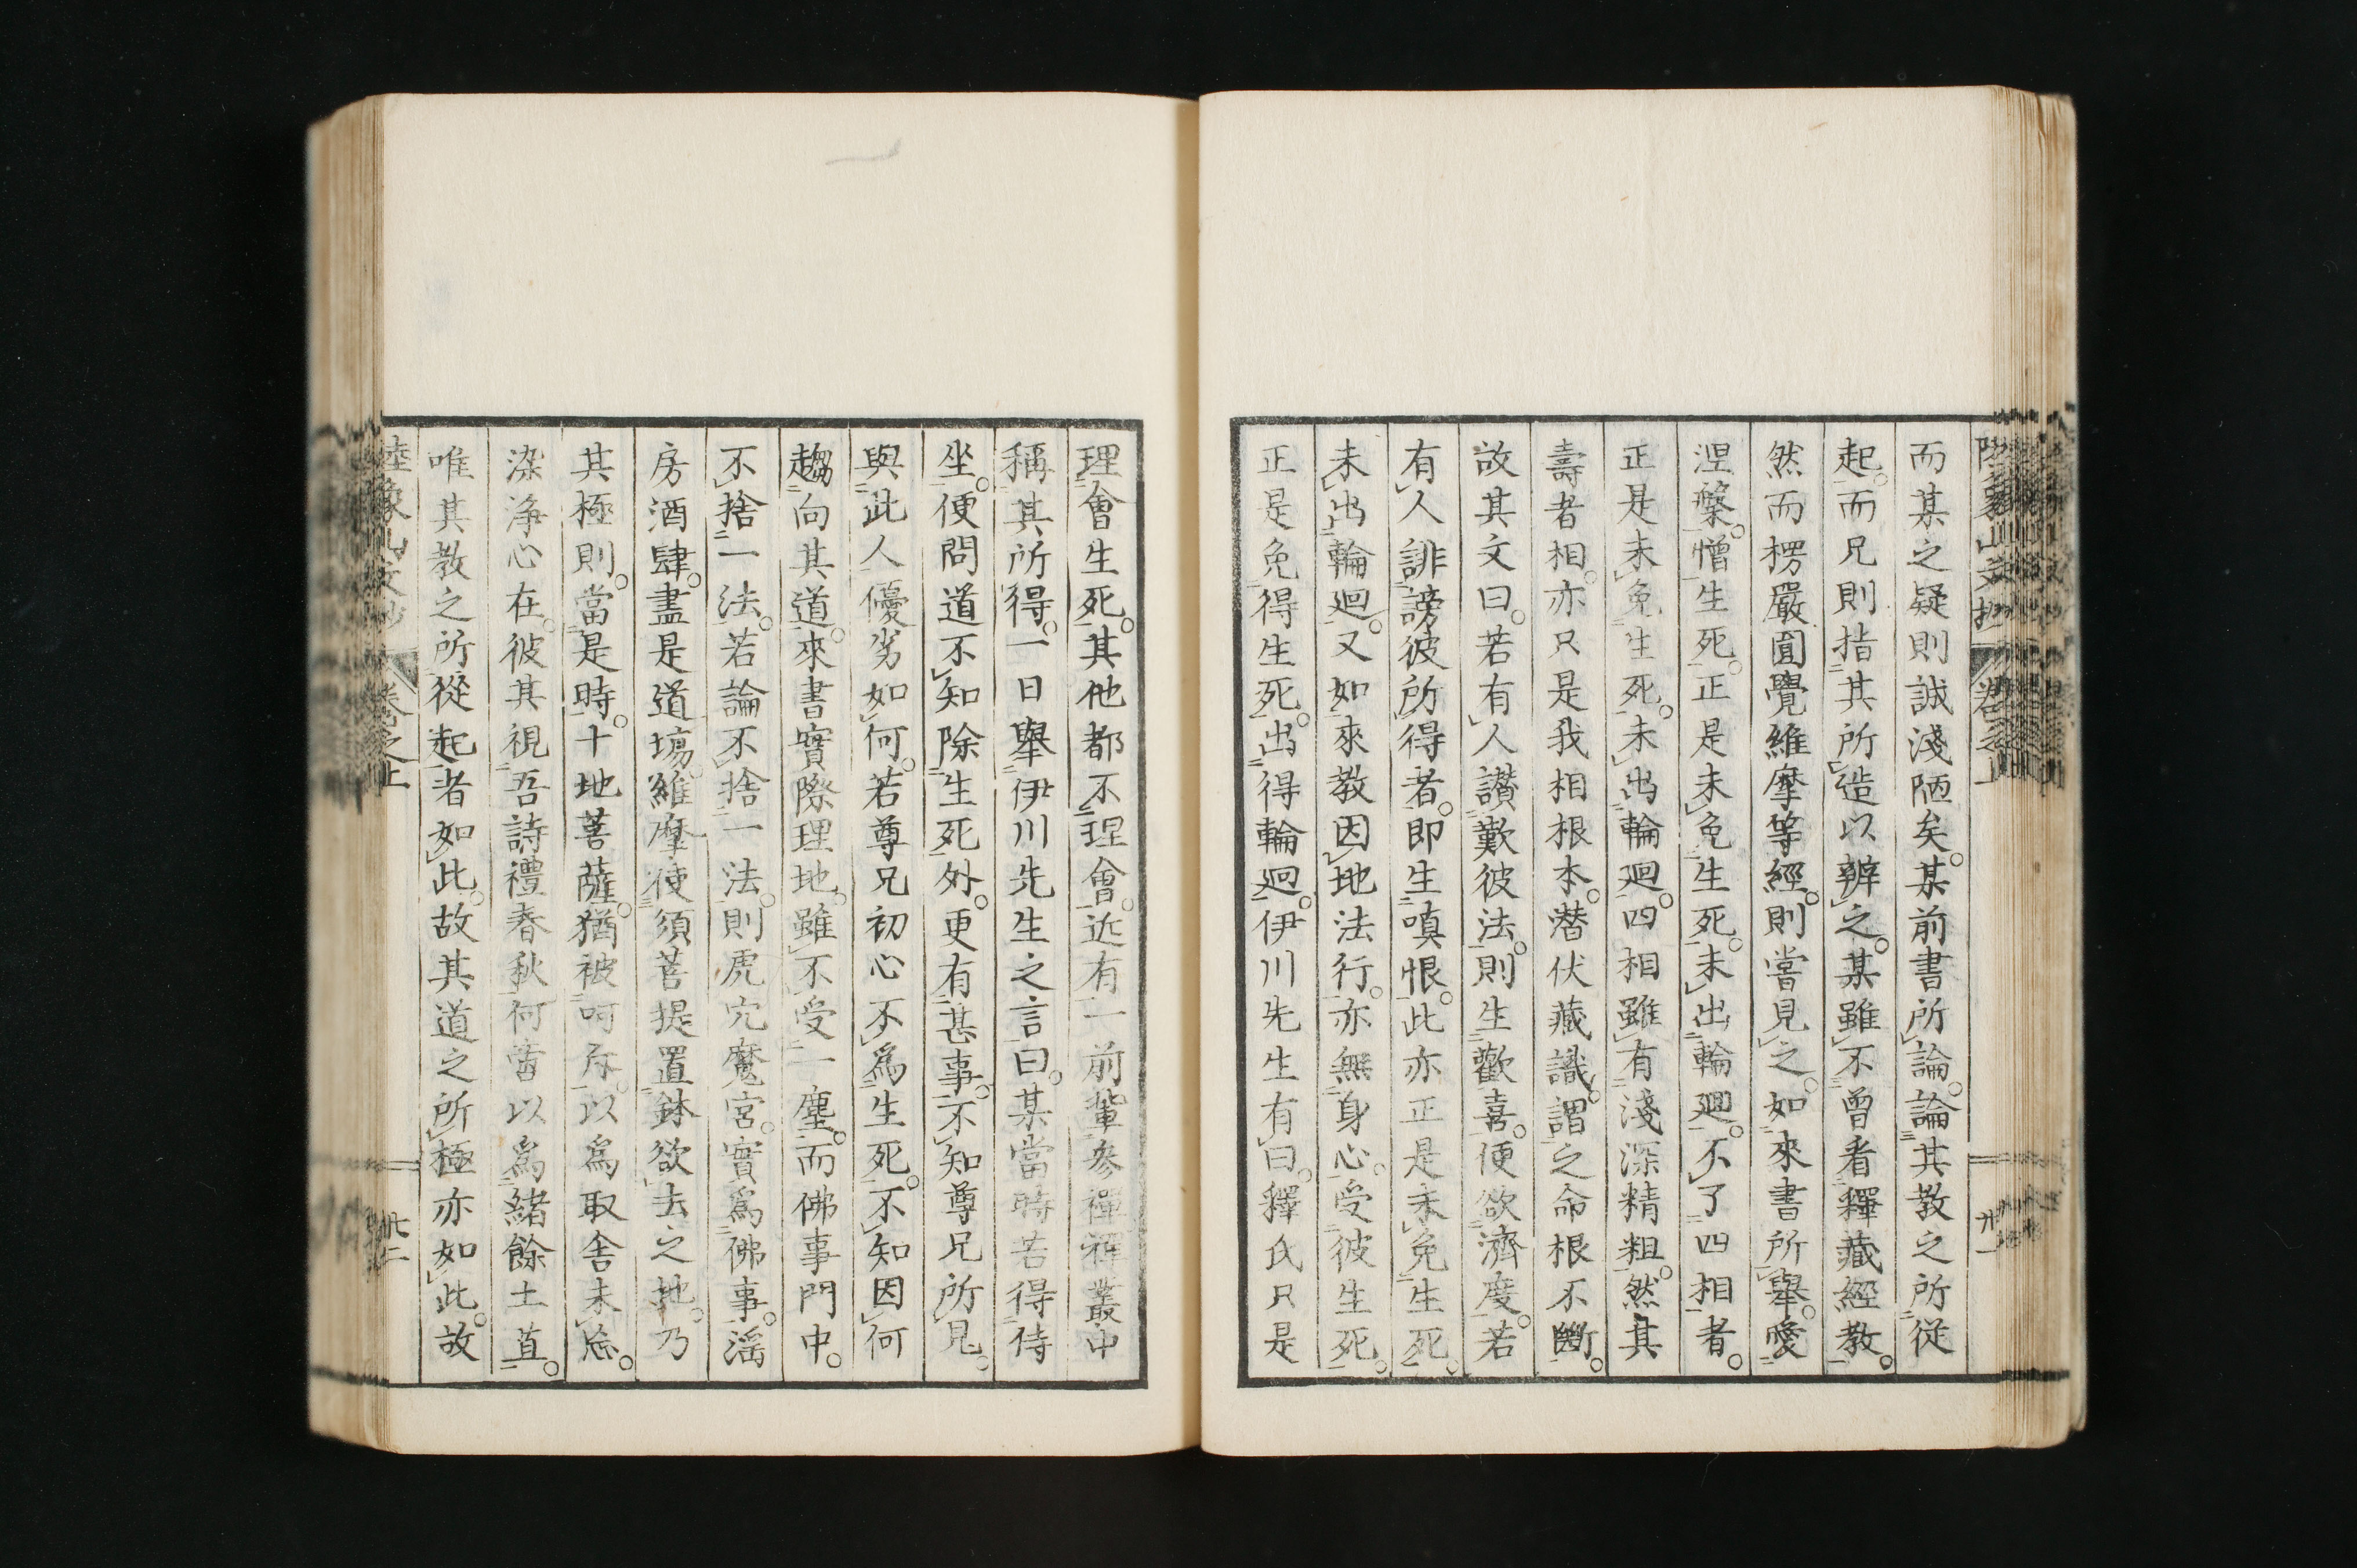 而某之疑則誠淺陋矣。某前書所論。論其教之所從
起。而兄則指其所造以辨之。某雖不曾看釋藏經教。
然而楞嚴圓覺維摩等經。則嘗見之。如來書所舉。愛
涅槃。憎生死。正是未免生死。未出輪廻。不了四相者。
正是未免生死。未出輪廻。四相雖有淺深精粗。然其
壽者相。亦只是我相根本。潜伏藏識。謂之命根不斷。
故其文曰。若有人讃歎彼法。則生歡喜。便欲濟度。若
有人誹謗彼所得者。即生嗔恨。此亦正是未免生死。
未出輪廻。又如來教因地法行。亦無身心。受彼生死。
正是免得生死。出得輪廻。伊川先生有曰。釋氏只是
理會生死。其他都不理會。近有一前輩參禪禪叢中
稱其所得。一日舉伊川先生之言曰。某當時若得侍
坐。便問道不知除生死外。更有甚事。不知尊兄所見。
與此人優劣如何。若尊兄初心不爲生死。不知因何
趨向其道。來書實際理地。雖不受一塵。而佛事門中。
不捨一法。若論不捨一法。則虎穴魔宮。實爲佛事。淫
房酒肆。盡是道塲。維摩使須菩提置鉢欲去之地。乃
其極則。當是時。十地菩薩。猶被呵斥。以爲取舍未忘。
染淨心在。彼其視吾詩禮春秋。何嘗以爲緒餘土苴。
唯其教之所從起者如此。故其道之所極亦如此。故
陸象山文抄 卷之上 卅二